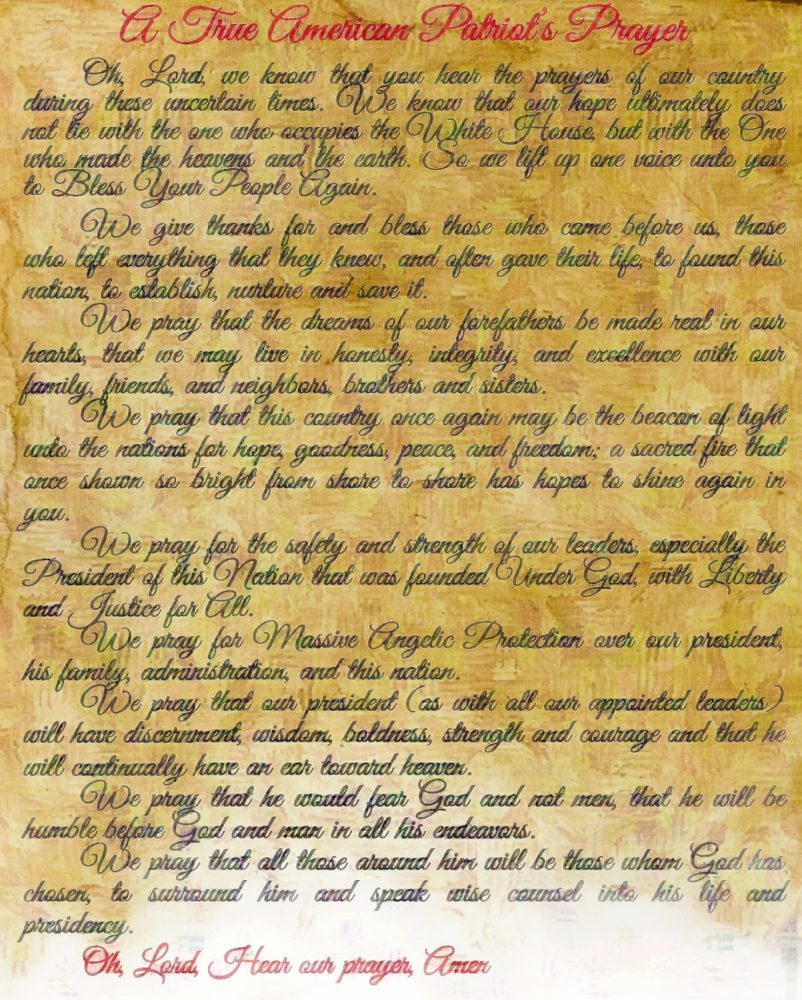 A True American Patriot's Prayer
Oh, Lord, we know that you hear the prayers of our country
during these uncertain times. We know that our hope ultimately does
not lie with the one who occupies the White House, but with the One
who made the heavens and the earth. So we lift up one voice unto you
to Bless Your People Again.
We give thanks for and bless those who came before us, those
who left everything that they knew, and often gave their life, to found this
nation, to establish, nurture and save it.
We pray that the dreams of our forefathers be made real in our
hearts, that we may live in honesty, integrity, and excellence with our
family, friends, and neighbors, brothers and sisters.
We pray that this country once again may be the beacon of light
unto the nations for hope, goodness, peace, and freedom; a sacred fire that
once shown so bright from shore to shore has hopes to shine again in
you.
We pray for the safety and strength of our leaders, especially the
President of this Nation that was founded Under God, with Liberty
and Justice for All.
We pray for Massive Angelic Protection over our president,
his family, administration, and this nation.
We pray that our president (as with all our appointed leaders)
will have discernment, wisdom, boldness, strength and courage and that he
will continually have an ear toward heaven.
We pray that he would fear God and not men, that he will be
humble before God and man in all his endeavors.
We pray that all those around him will be those whom God has
chosen, to surround him and speak wise counsel into his life and
presidency.
Oh, Lord, Hear our prayer, Amen